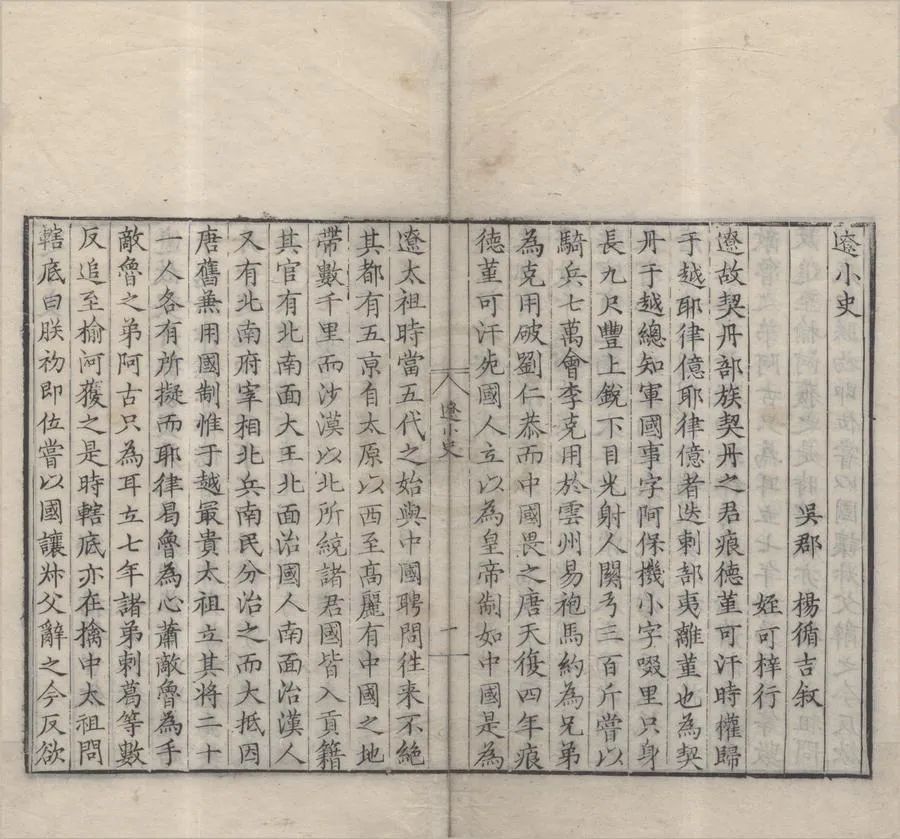 遼小史
吳郡 楊循吉叙
姪可梓行
遼故契丹部族契丹之君痕德菫可汗時權歸
于越耶律億耶律億者迭剌部夷离菫也為契
丹于越總知軍國事字阿保機小字啜里只身
長九尺豐上銳下目光射人關弓三百斤嘗以
騎兵七萬會李克用於雲州易袍馬約為兄弟
為克用破劉仁恭而中國畏之唐天復四年痕
德菫可汗死國人立以為皇帝制如中國是為
遼小史
一
遼太祖時當五代之始與中國聘問徃来不絶
其都有五京自太原以西至髙麗有中國之地
帶數千里而沙漠以北所統諸君國皆入貢籍
其官有北南面大王北面治國人南面治漢人
又有北南府宰相北兵南民分治之而大抵因
唐舊兼用國制惟于越最貴太祖立其將二十
一人各有所擬而耶律曷魯為心蕭敵魯為手
敵魯之弟阿古只為耳立七年諸弟剌葛等數
反追至榆河獲之是時轄底亦在擒中太祖問
轄底曰朕初即位嘗以國讓叔父辭之今反欲